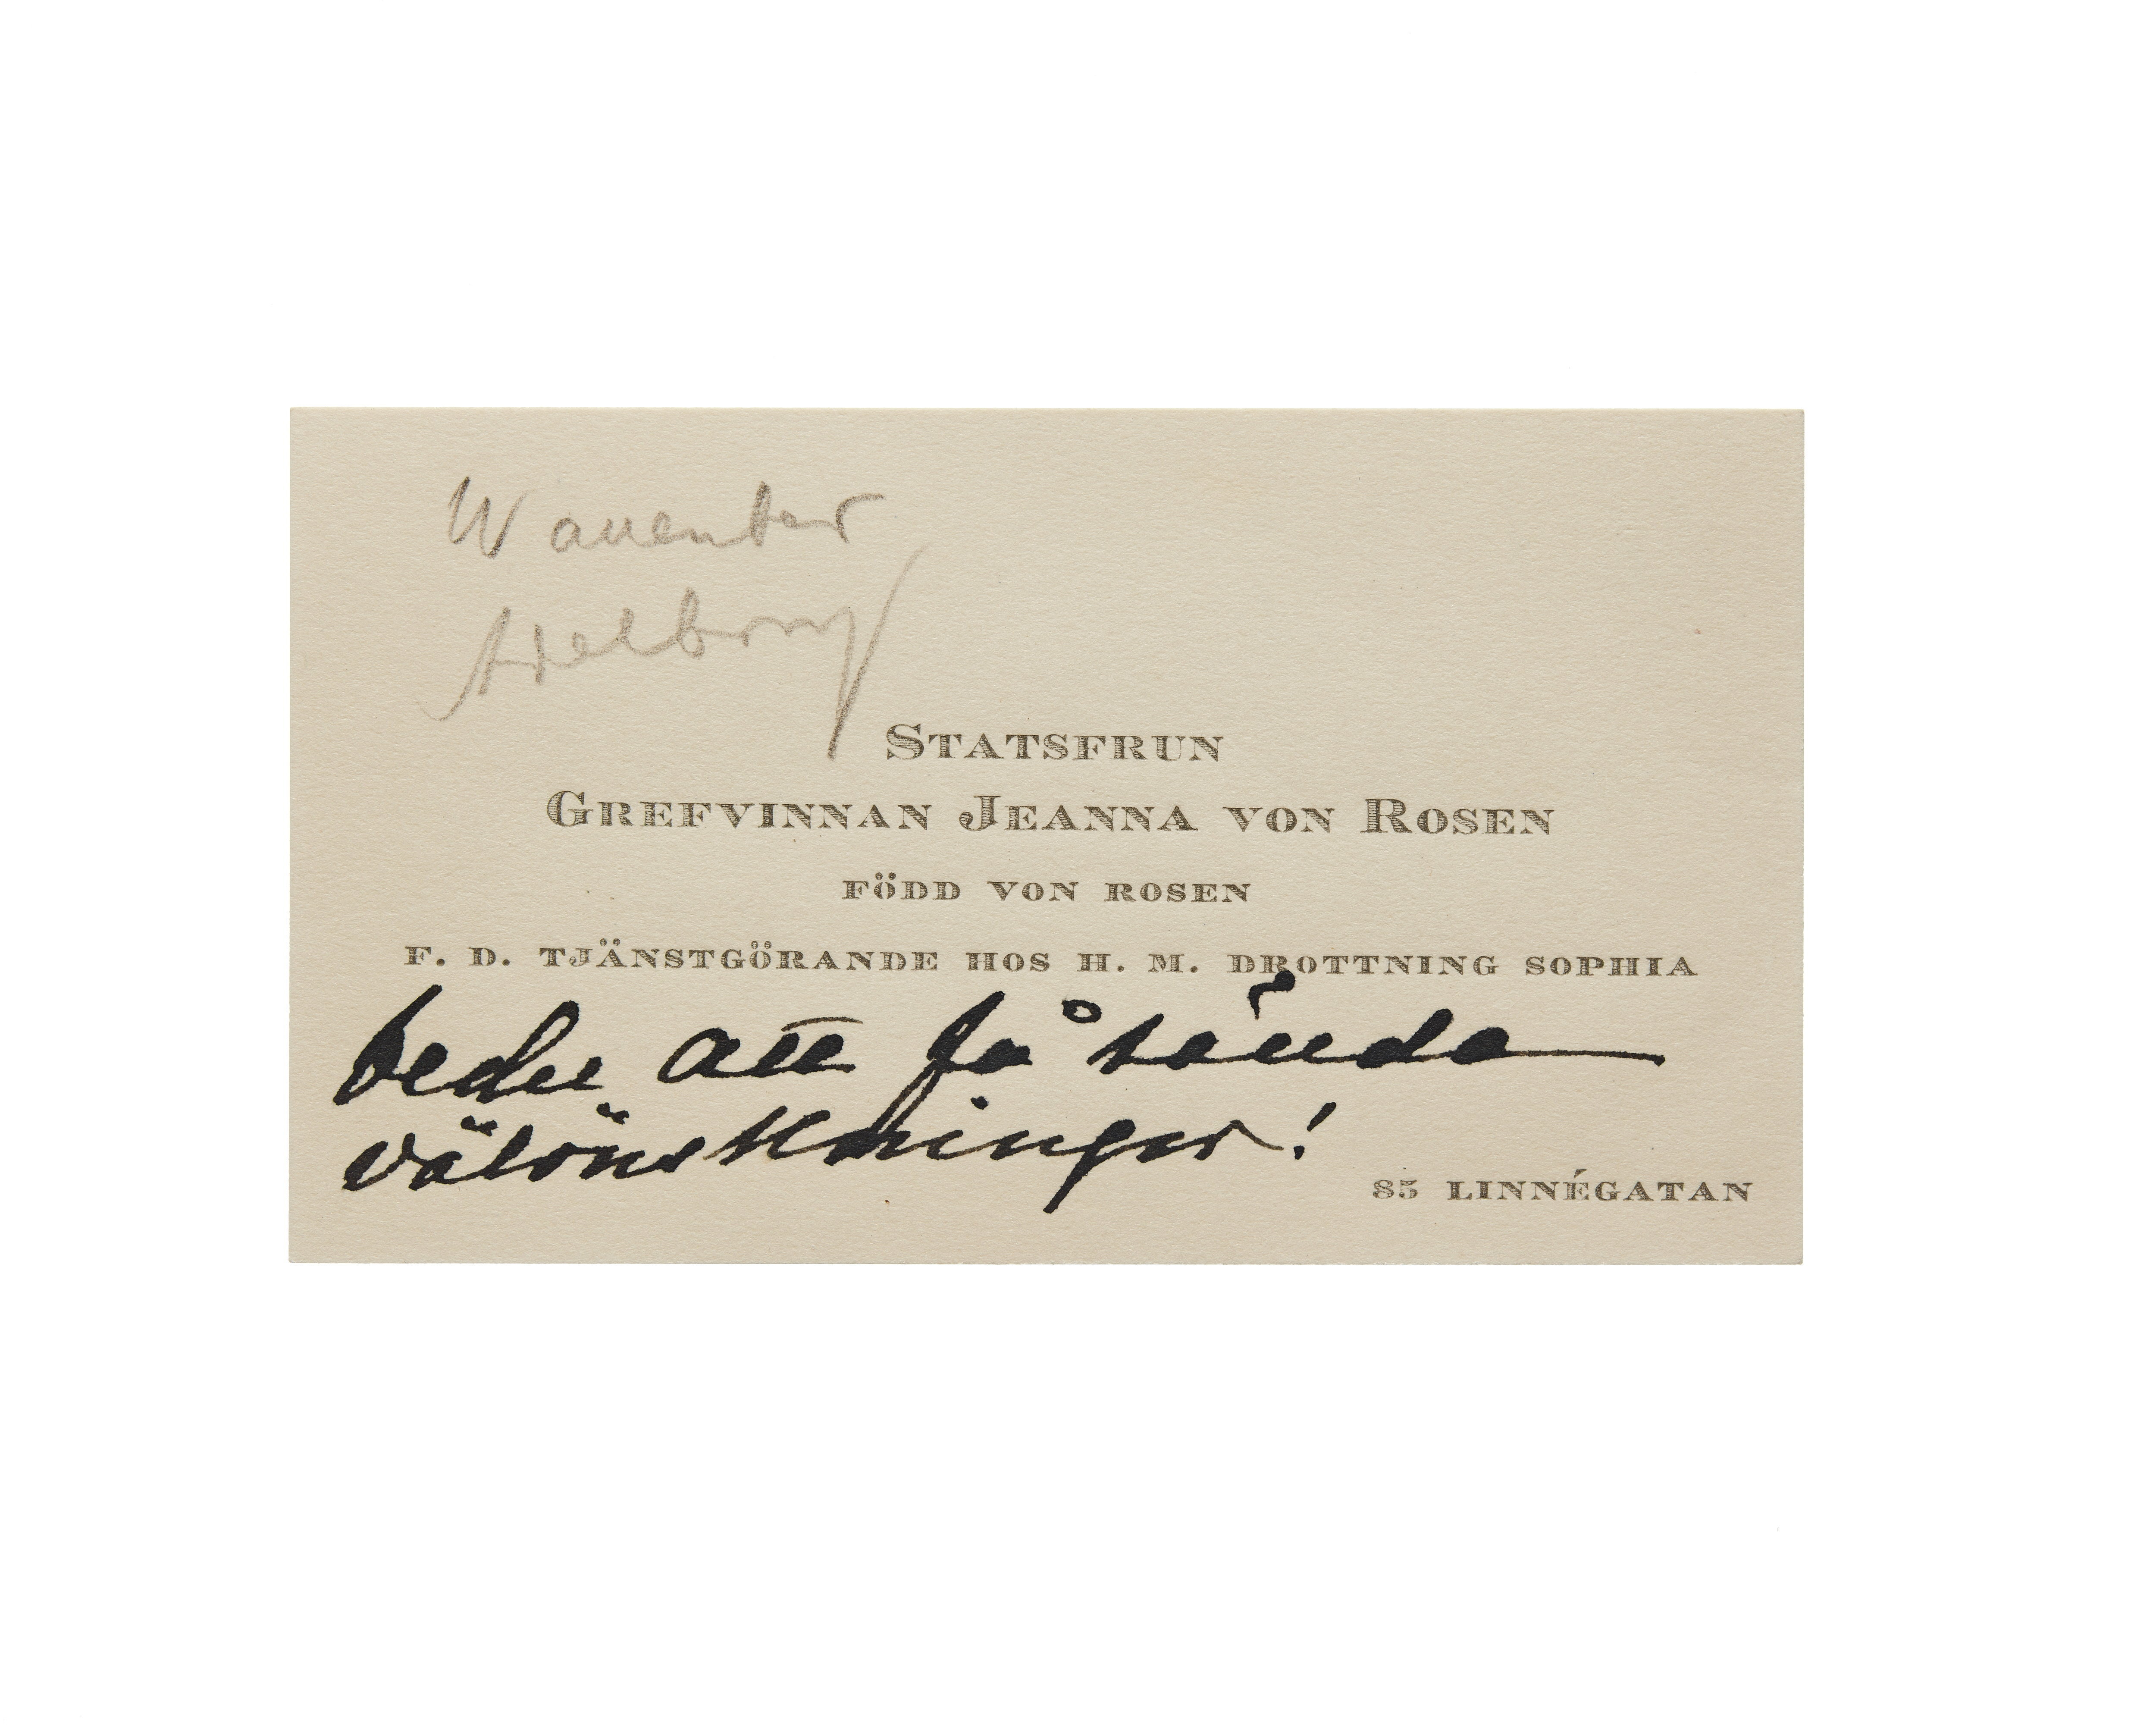 STATSFRUN
GREFVINNAN JEANNA VON ROSEN
FÖDD VON ROSEN
F. D. TJÄNSTGÖRANDE HOS H. M. DROTTNING SOPHIA
beder att få sända
välönskningar!
85 LINNÉGATAN